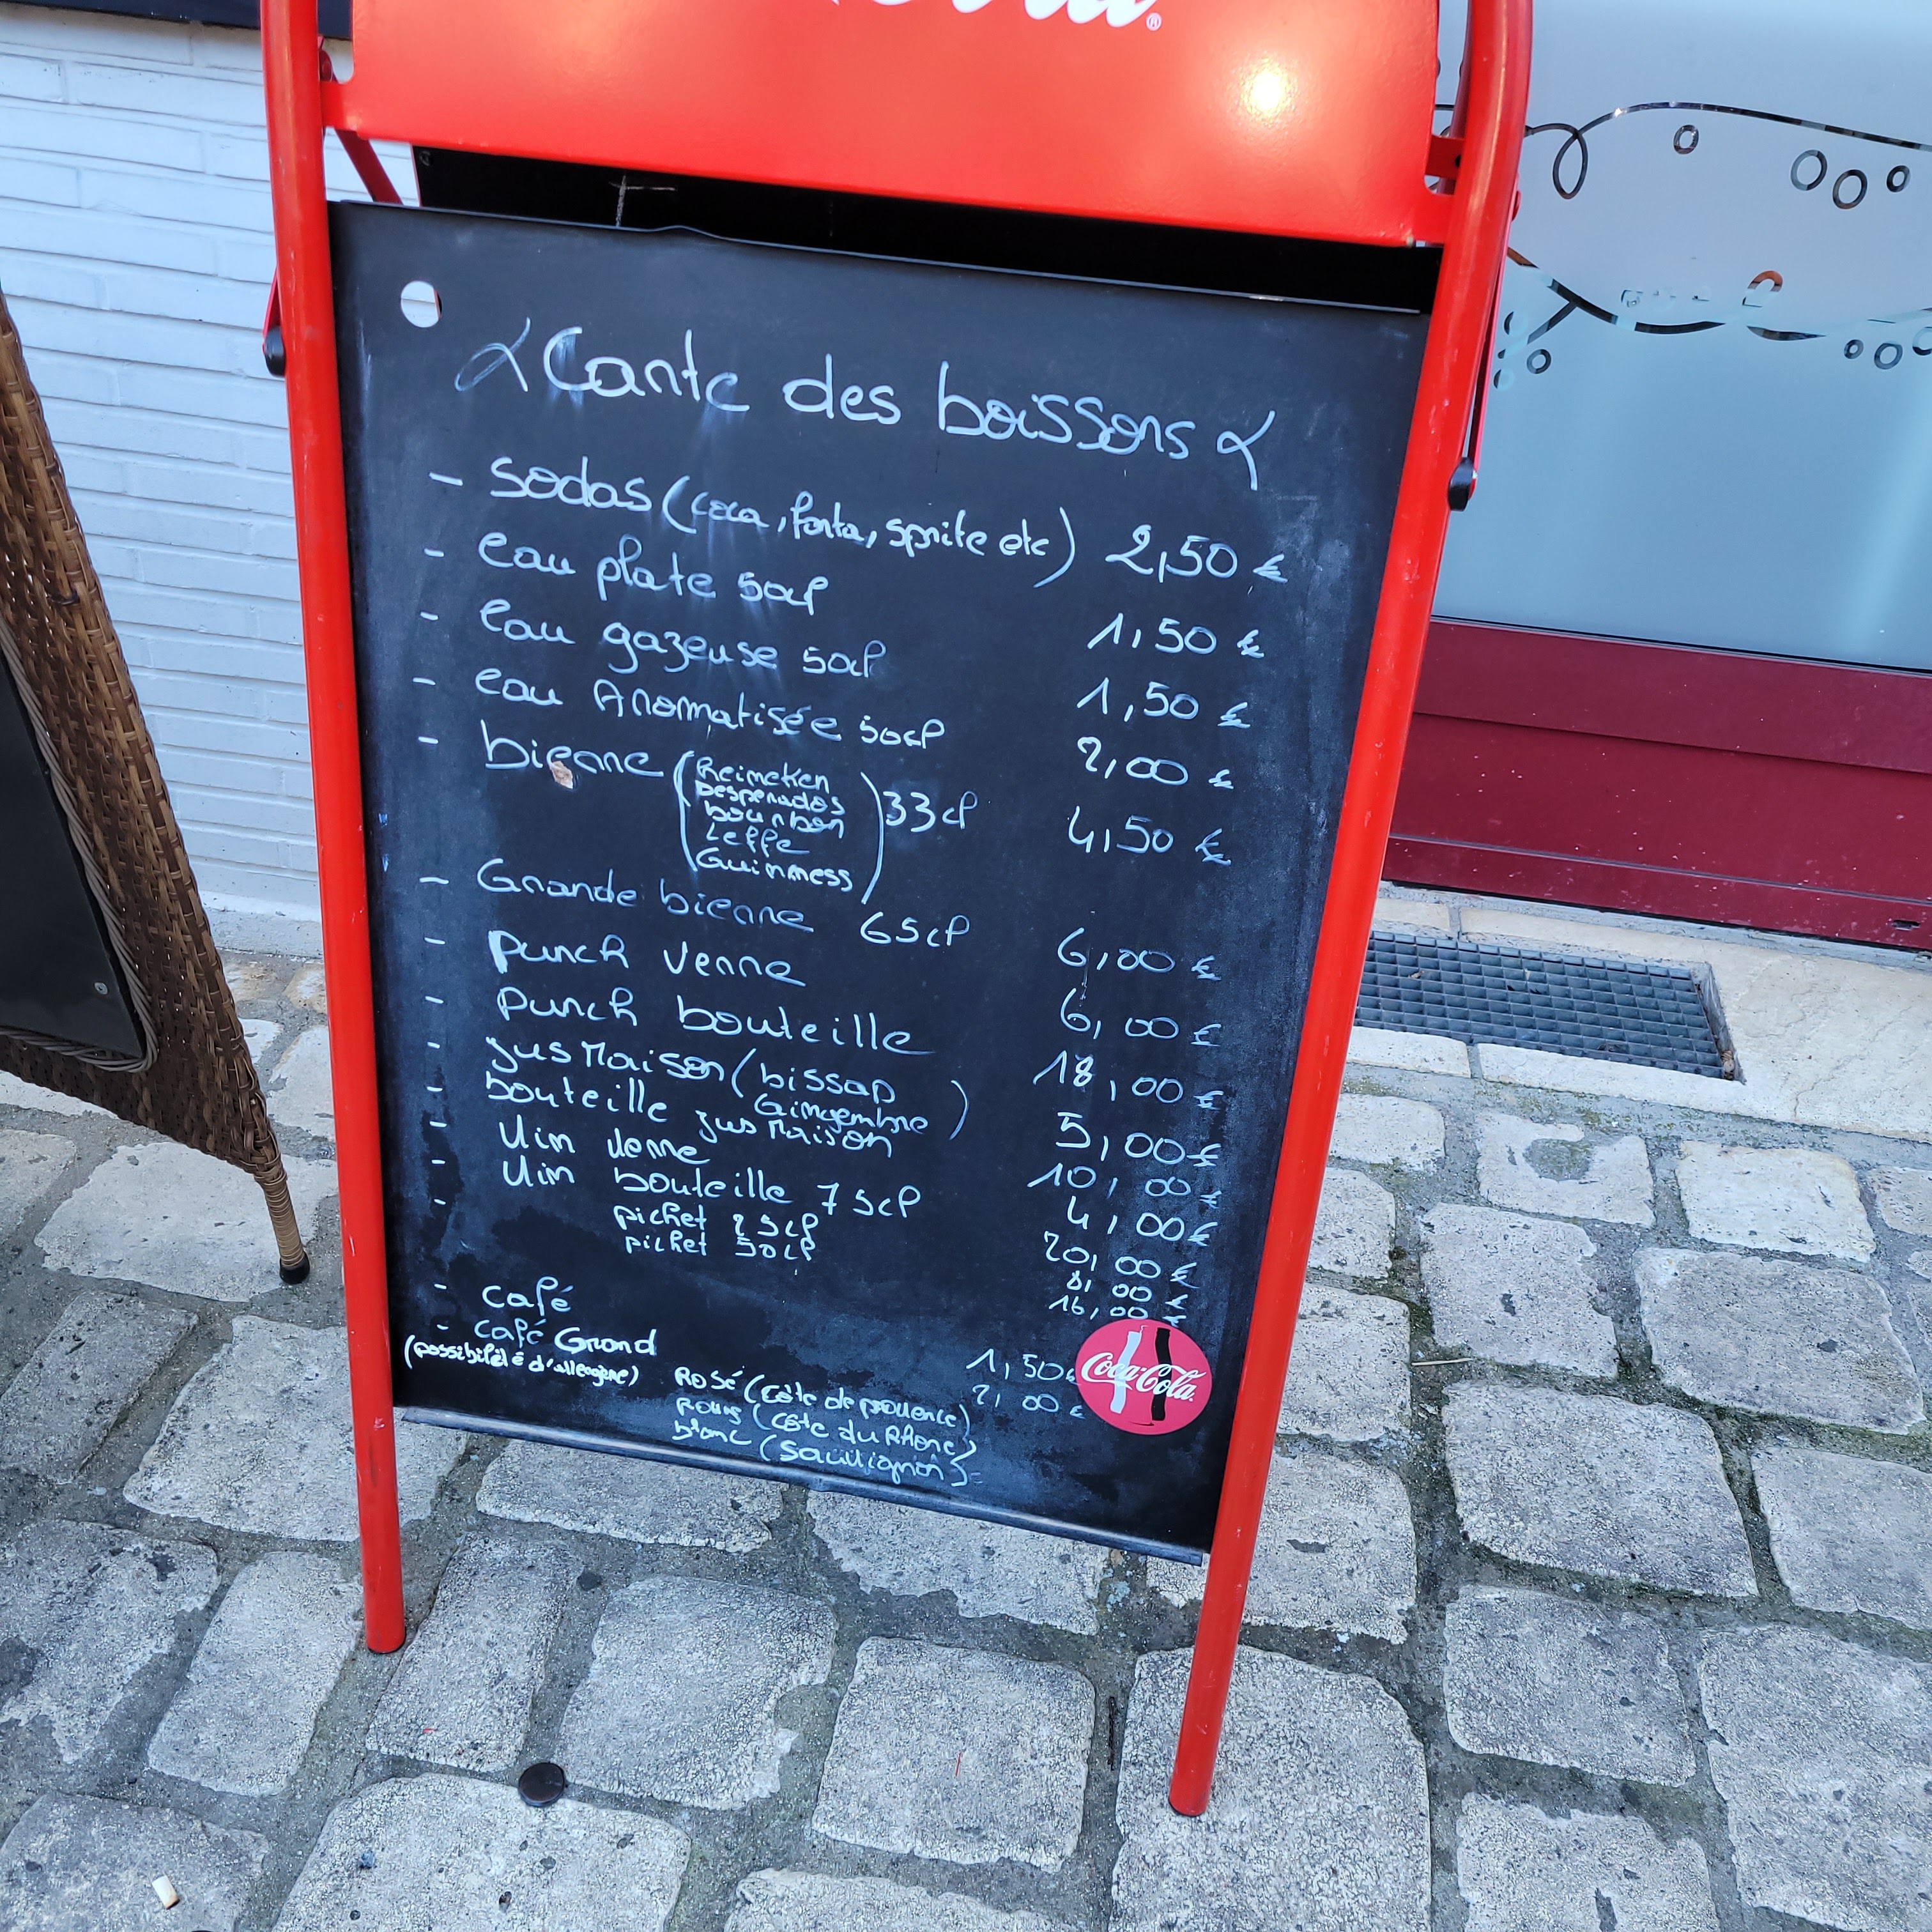 Cola®
Carte des boissons
- sodas (coca, fanta, sprite etc) 2,50 €
- eau plate 50cl 1,50 €
- eau gazeuse 50cl 1,50 €
- eau Aromatisée 50cl 2,00 €
- bierre (Heineken 33cl 4,50 €
Desperados
bourbon
Leffe
Guinness)
- Grande bierre 65cl 6,00 €
- punch verre 6,00 €
- punch bouteille 18,00 €
- jus Maison (bissap 5,00 €
Gingembre)
- bouteille jus Maison 10,00 €
- Vin verre 4,00 €
- Vin bouteille 75cl 20,00 €
- pichet 25cl 8,00 €
pichet 50cl 16,00 €
- café 1,50 €
- café Grand 2,00 €
(possibilité d'allergène)
Rosé (Côte de provence)
Rouge (Côte du Rhone)
blanc (Sauvignon)
Coca-Cola